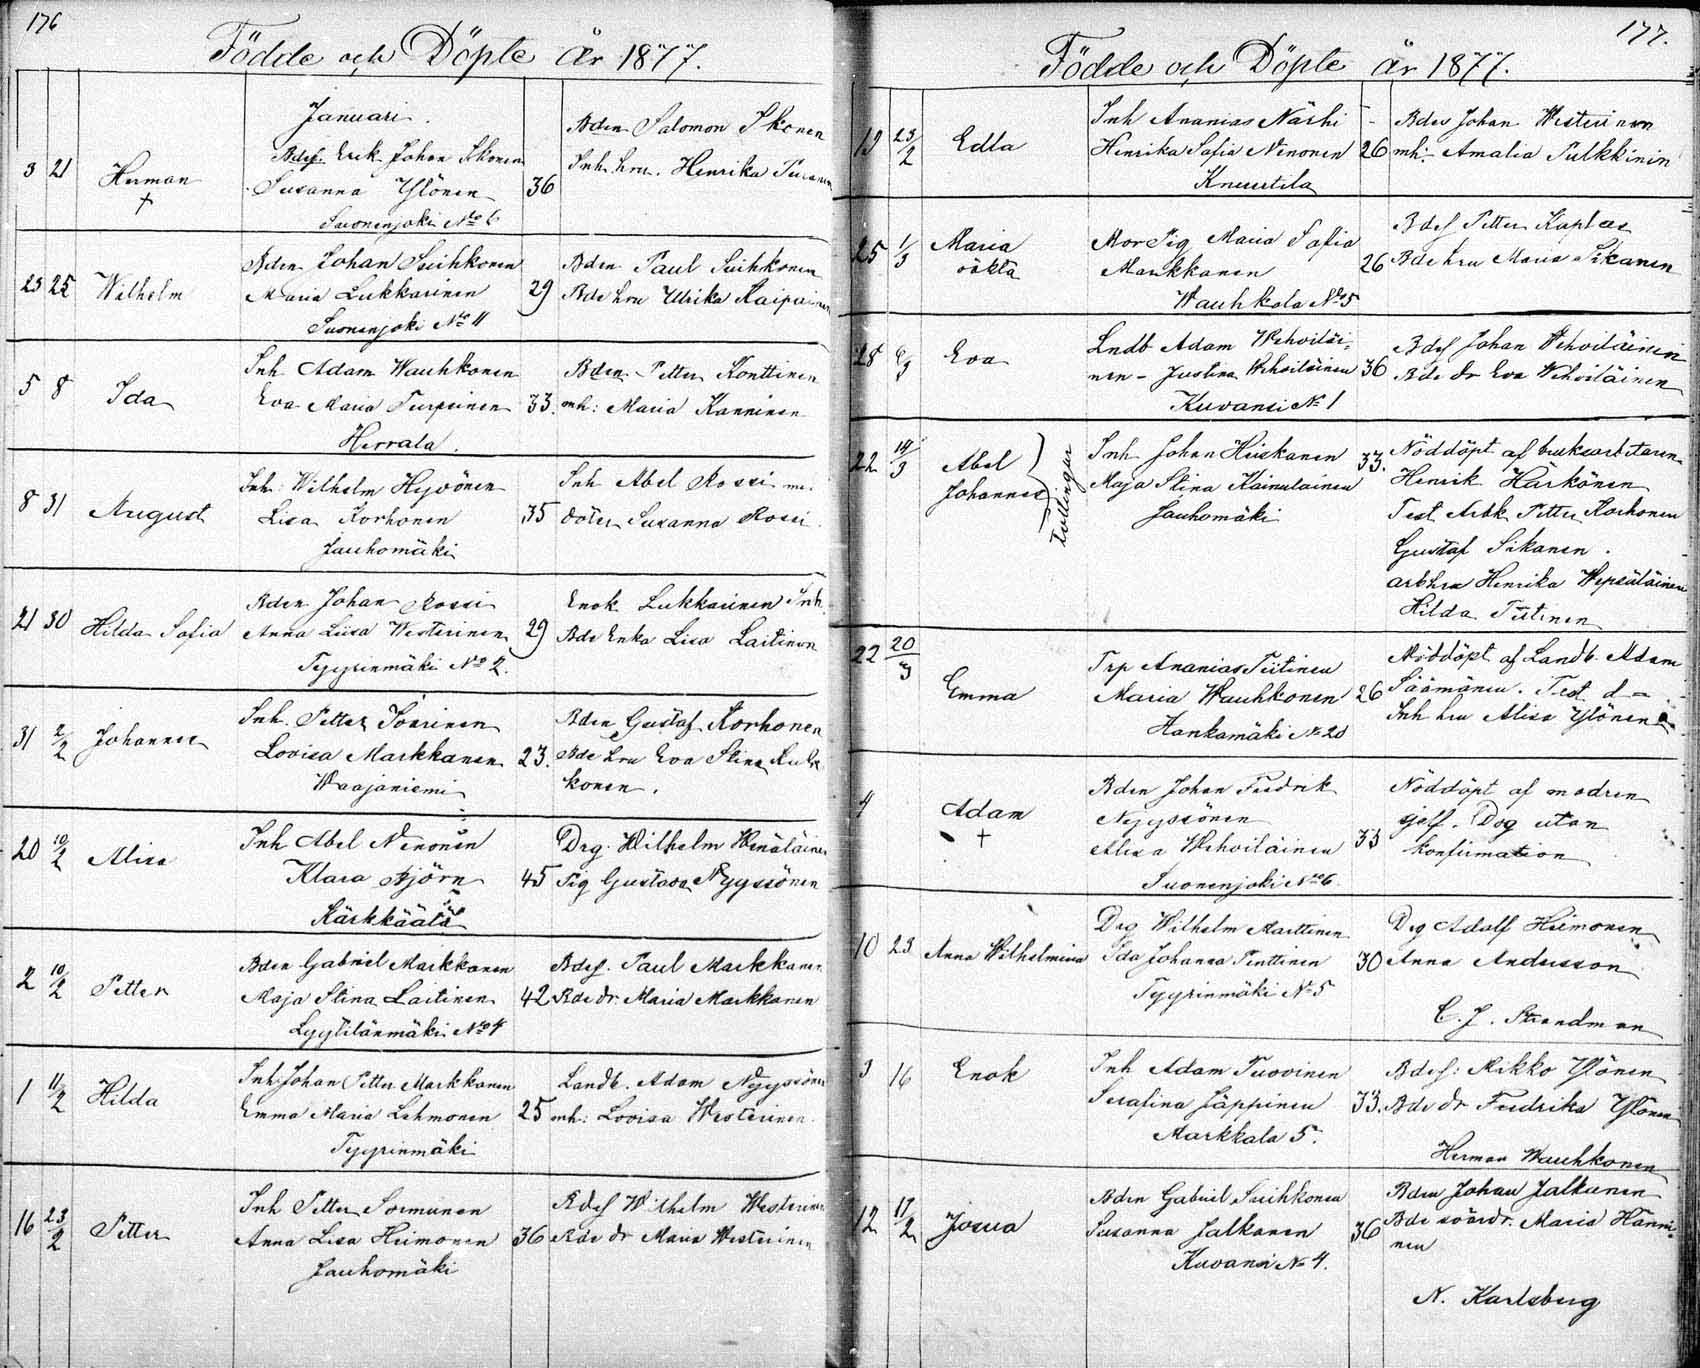 176
Födde och Döpte År 1877.
Januari.
3 21 Herman †
Bdes. Erik Johan Ikonen
Susanna Ylönen 36
Suonenjoki No 6
Bden Salomon Ikonen
Inh hru. Henrika
23 25 Wilhelm
Bden Johan Suihkonen
Maria Lukkarinen 29
Suonenjoki No 11
Bden Paul Suihkonen
Bde hru Ulrika Kaipainen
5 8 Ida
Inh Adam Wauhkonen
Eva Maria Turpeinen 33.
Herrala.
Bden Petter Konttinen
mh: Maria Kanninen
8 31 August
Inh: Wilhelm Hyvönen
Lisa Korhonen 35
Jauhomäki
Inh Abel Rossi m.
doter Susanna Rossi
21 30 Hilda Sofia
Bden Johan Rossi
Anna Liisa Westerinen 29
Tyyrinmäki No 2.
Enok Lukkarinen Inh.
Bde Enka Lisa Laitinen
31 2/2 Johannes
Inh. Petter Soirinen
Lovisa Markkanen 23.
Waajaniemi
Bden Gustaf Korhonen
Bde hru Eva Stina
konen.
20 10/2 Alisa
Inh Abel Nenonen
Klara Björn 45
Kärkkäälä
Drg. Wilhelm Wenäläinen
Pig Gustava Nyyssönen
2 10/2 Petter
Bden Gabriel Markkanen
Maja Stina Laitinen 42
Lyytilänmäki No 4
Bdes. Paul Markkanen
Bde dr. Maria Markkanen
1 11/2 Hilda
Inh Johan Petter Markkanen
Emma Maria Lehmonen 25
Tyyrinmäki
Landb. Adam Nyyssönen
mh: Lovisa Westerinen.
16 23/2 Petter
Inh Petter Sormunen
Anna Lisa Heimonen 36
Jauhomäki
Bdes Wilhelm Westerinen
Bde dr Maria Westerinen
177.
Födde och Döpte år 1877.
19 23/2 Edla
Inh Ananias Närhi
Henrika Sofia Nenonen 26
Knuutila
Bdes Johan Westerinen
mh: Amalia Pulkkinin
25 1/3 Maria oäkta
Mor Pig Maria Sofia
Markkanen 26
Wauhkola No 5
Bdes Petter Kaplas
Bde hru Maria Sikanen
28 Eva
Lndb Adam Wehviläi-
nen - Justina Wehviläinen 36
Kuvansi No 1
Bdes Johan Wehviläinen
Bde dr Eva Wehviläinen
22 14/3 Abel
Johannes } tvillingar
Inh Johan Heiskanen 33.
Maja Stina Kainulainen
Jauhomäki
Nöddöpt af bruksarbetaren
Henrik Härkönen
Test Arbk Petter Korhonen
Gustaf Sikanen.
arb hru Henrika Wepsäläinen
Hilda Tiitinen
22 20/3 Emma
Trp Ananias Tiitinen
Maria Wauhkonen 26
Hankamäki No 20
Nöddöpt af Landb. Adam
Säämänen. Test d-a
Inh hru Alisa Ylönen
4 Adam †
Bden Johan Fredrik
Nyyssönen
Alisa Wehviläinen 33
Suonenjoki No 6
Nöddöpt af modren
sjelf. Dog utan
konfirmation
10 23 Anna Wilhelmina
Drg Wilhelm Marttinen
Ida Johanna Penttinen 30
Tyyrinmäki No 5
Drg Adolf Heimonen
Anna Andersson
C. J. Strandman
3 16 Enok
Inh Adam Tuovinen
Serafina Jäppinen 33.
Markkala 5.
Bdes: Mikko Ylönen
Bde dr Fredrika Ylönen
Herman Wauhkonen
12 17/2 Josua
Bden Gabriel Suihkonen
Susanna Jalkanen 36
Kuvansi No 4.
Bden Johan Jalkanen
Bde sönedr. Maria Hänni-
nen
N. Karlsberg